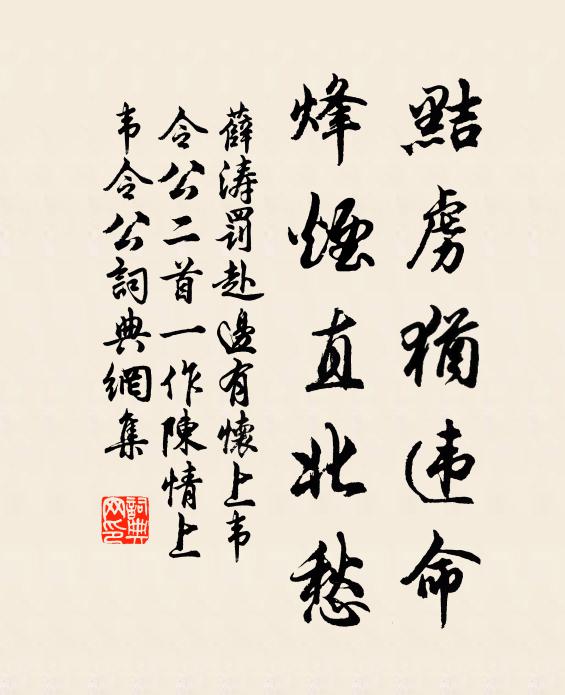 黠虏犹违命
烽煙直北愁
薛涛罰赴邊有懷上韦
令公二首一作陳情上
韦令公詞典網集
詞典网印